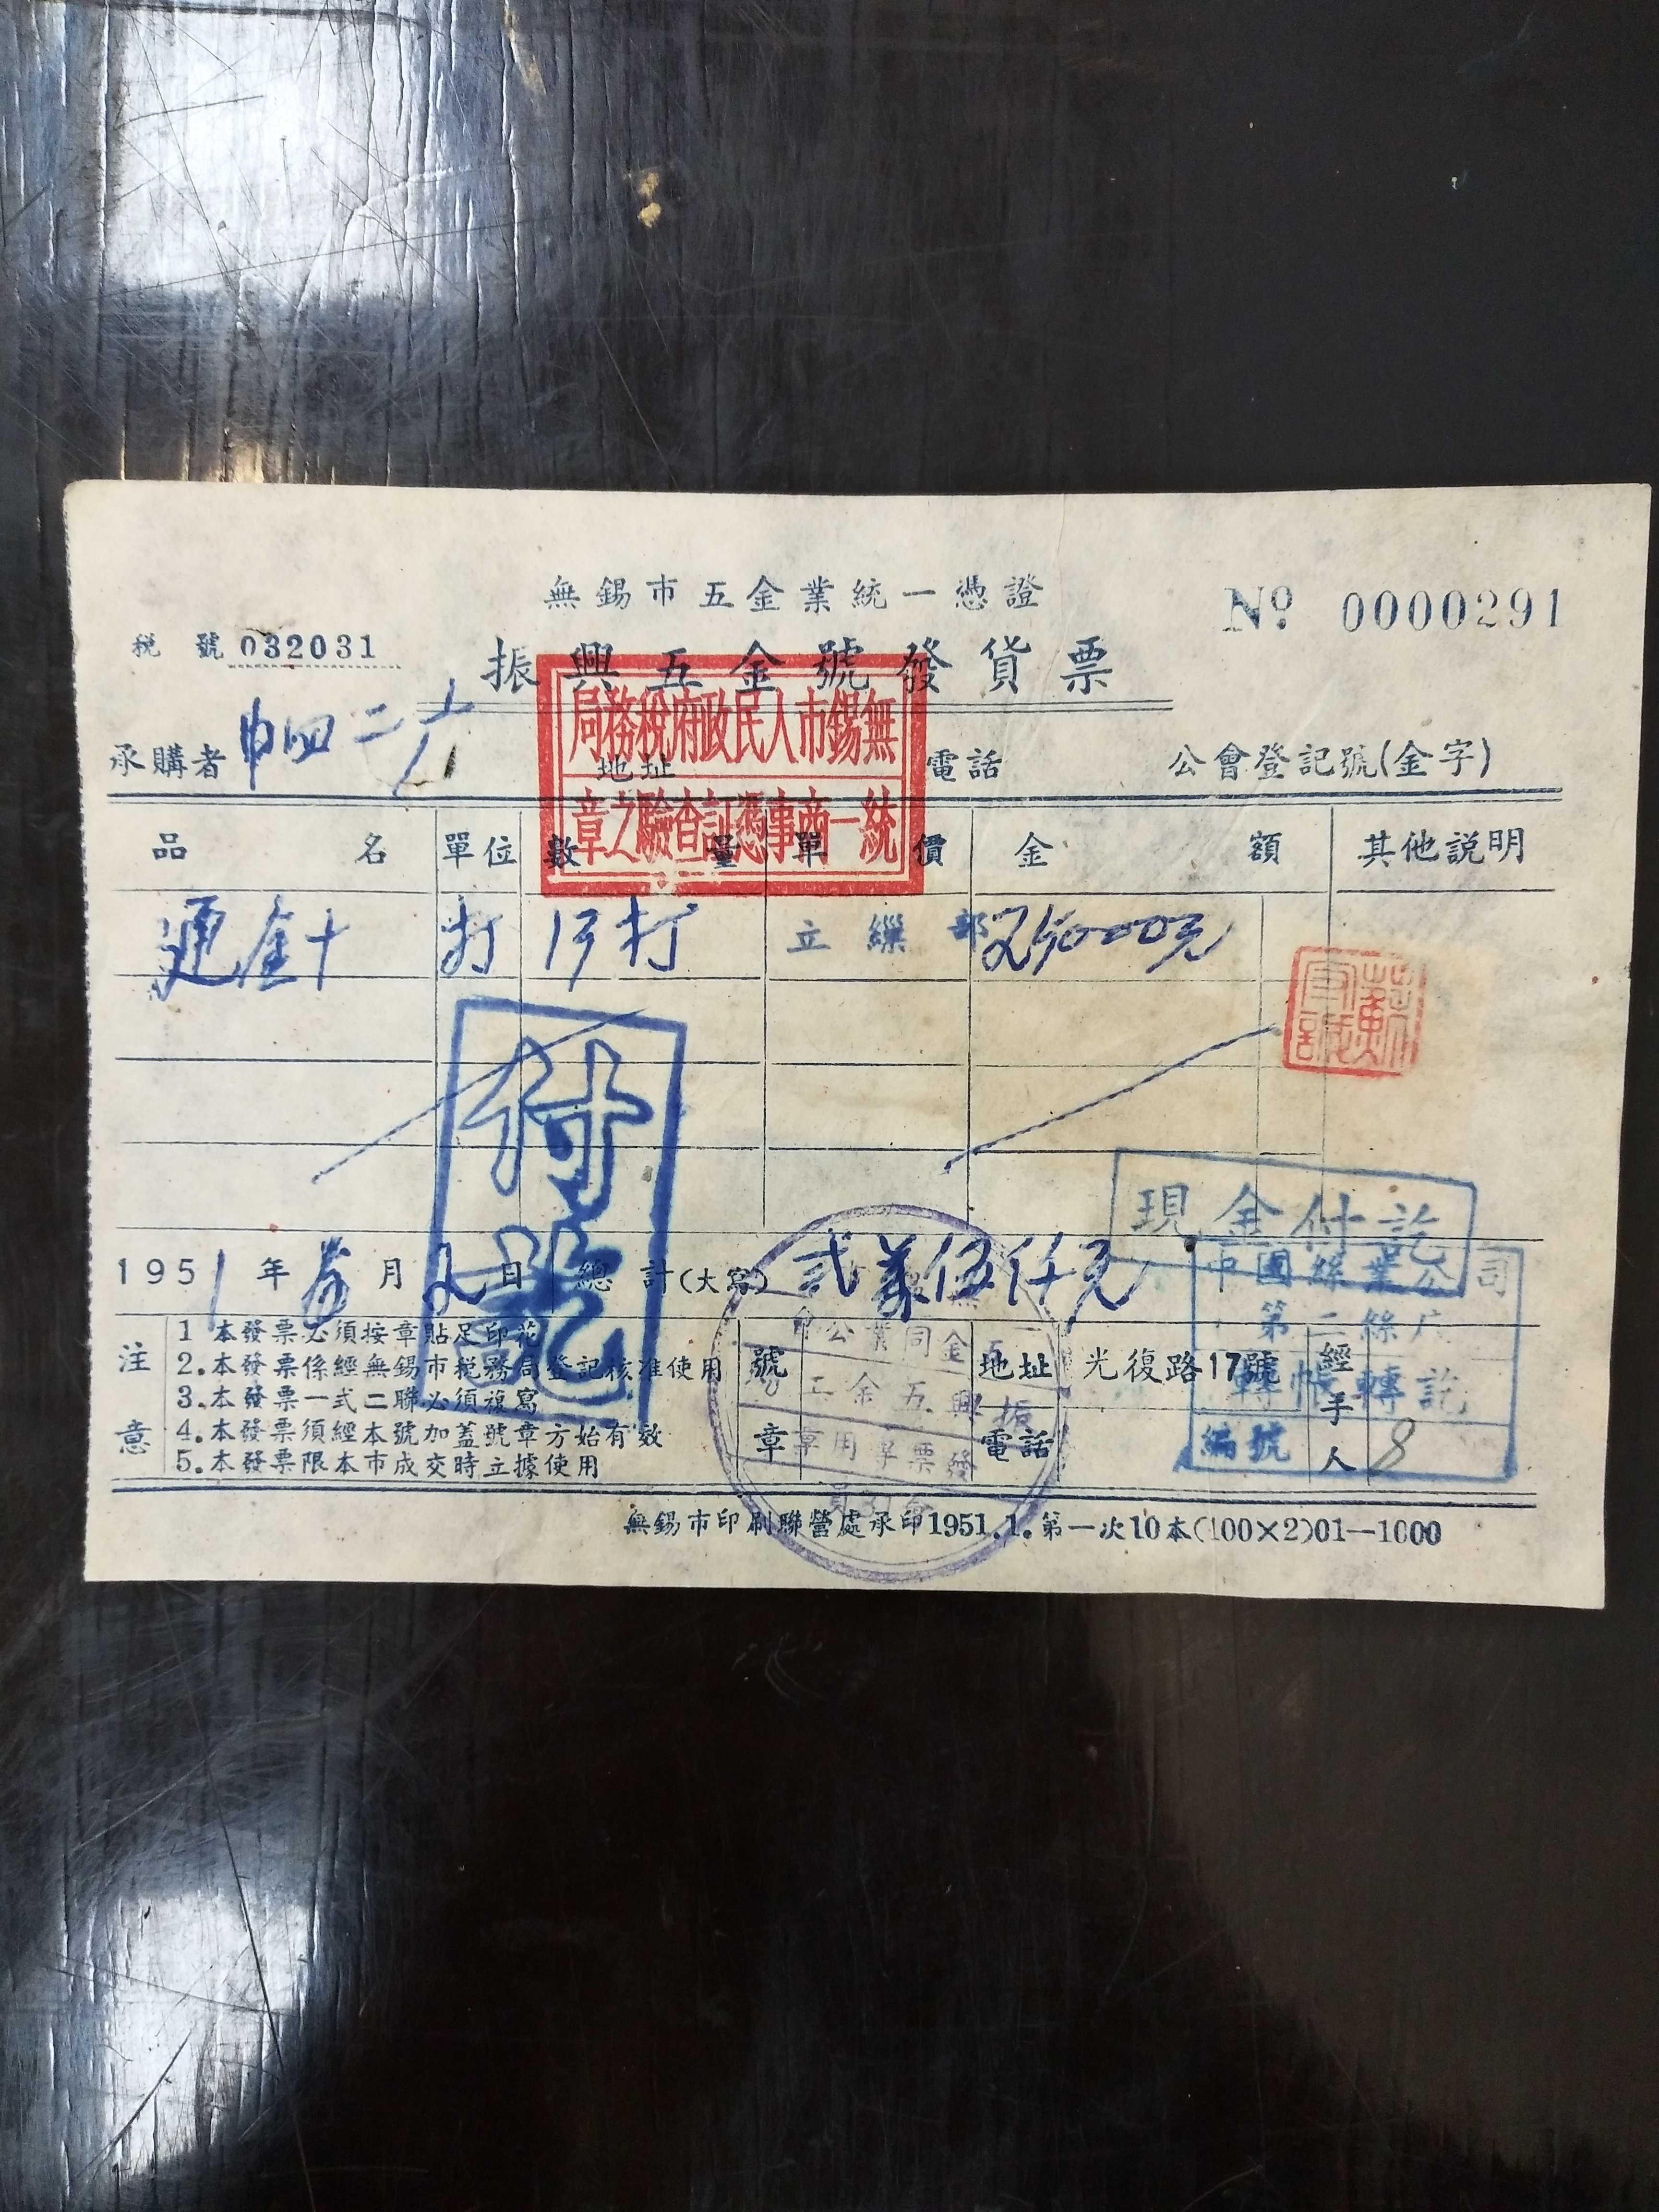 無錫市五金業統一憑證
№ 0000291
稅號 032031
振興五金號發貨票
無錫市人民政府稅務局
統一商事憑証查驗之章
承購者
地址
電話
公會登記號(金字)
品名 單位 數量 單價 金額 其他説明
通金十 打 立繅部 250000元
付訖
現金付訖
1951年 月 2日 總計(大寫) 弍萬伍仟元
中國絲業公司
第二絲厂
轉帳轉訖
編號
注意
1 本發票必須按章貼足印花
2.本發票係經無錫市稅務局登記核准使用
3.本發票一式二聯必須複寫
4.本發票須經本號加蓋號章方始有效
5.本發票限本市成交時立據使用
號章
地址 光復路17號
電話
經手人 8
無錫市印刷聯營處承印1951.1.第一次10本(100×2)01—1000